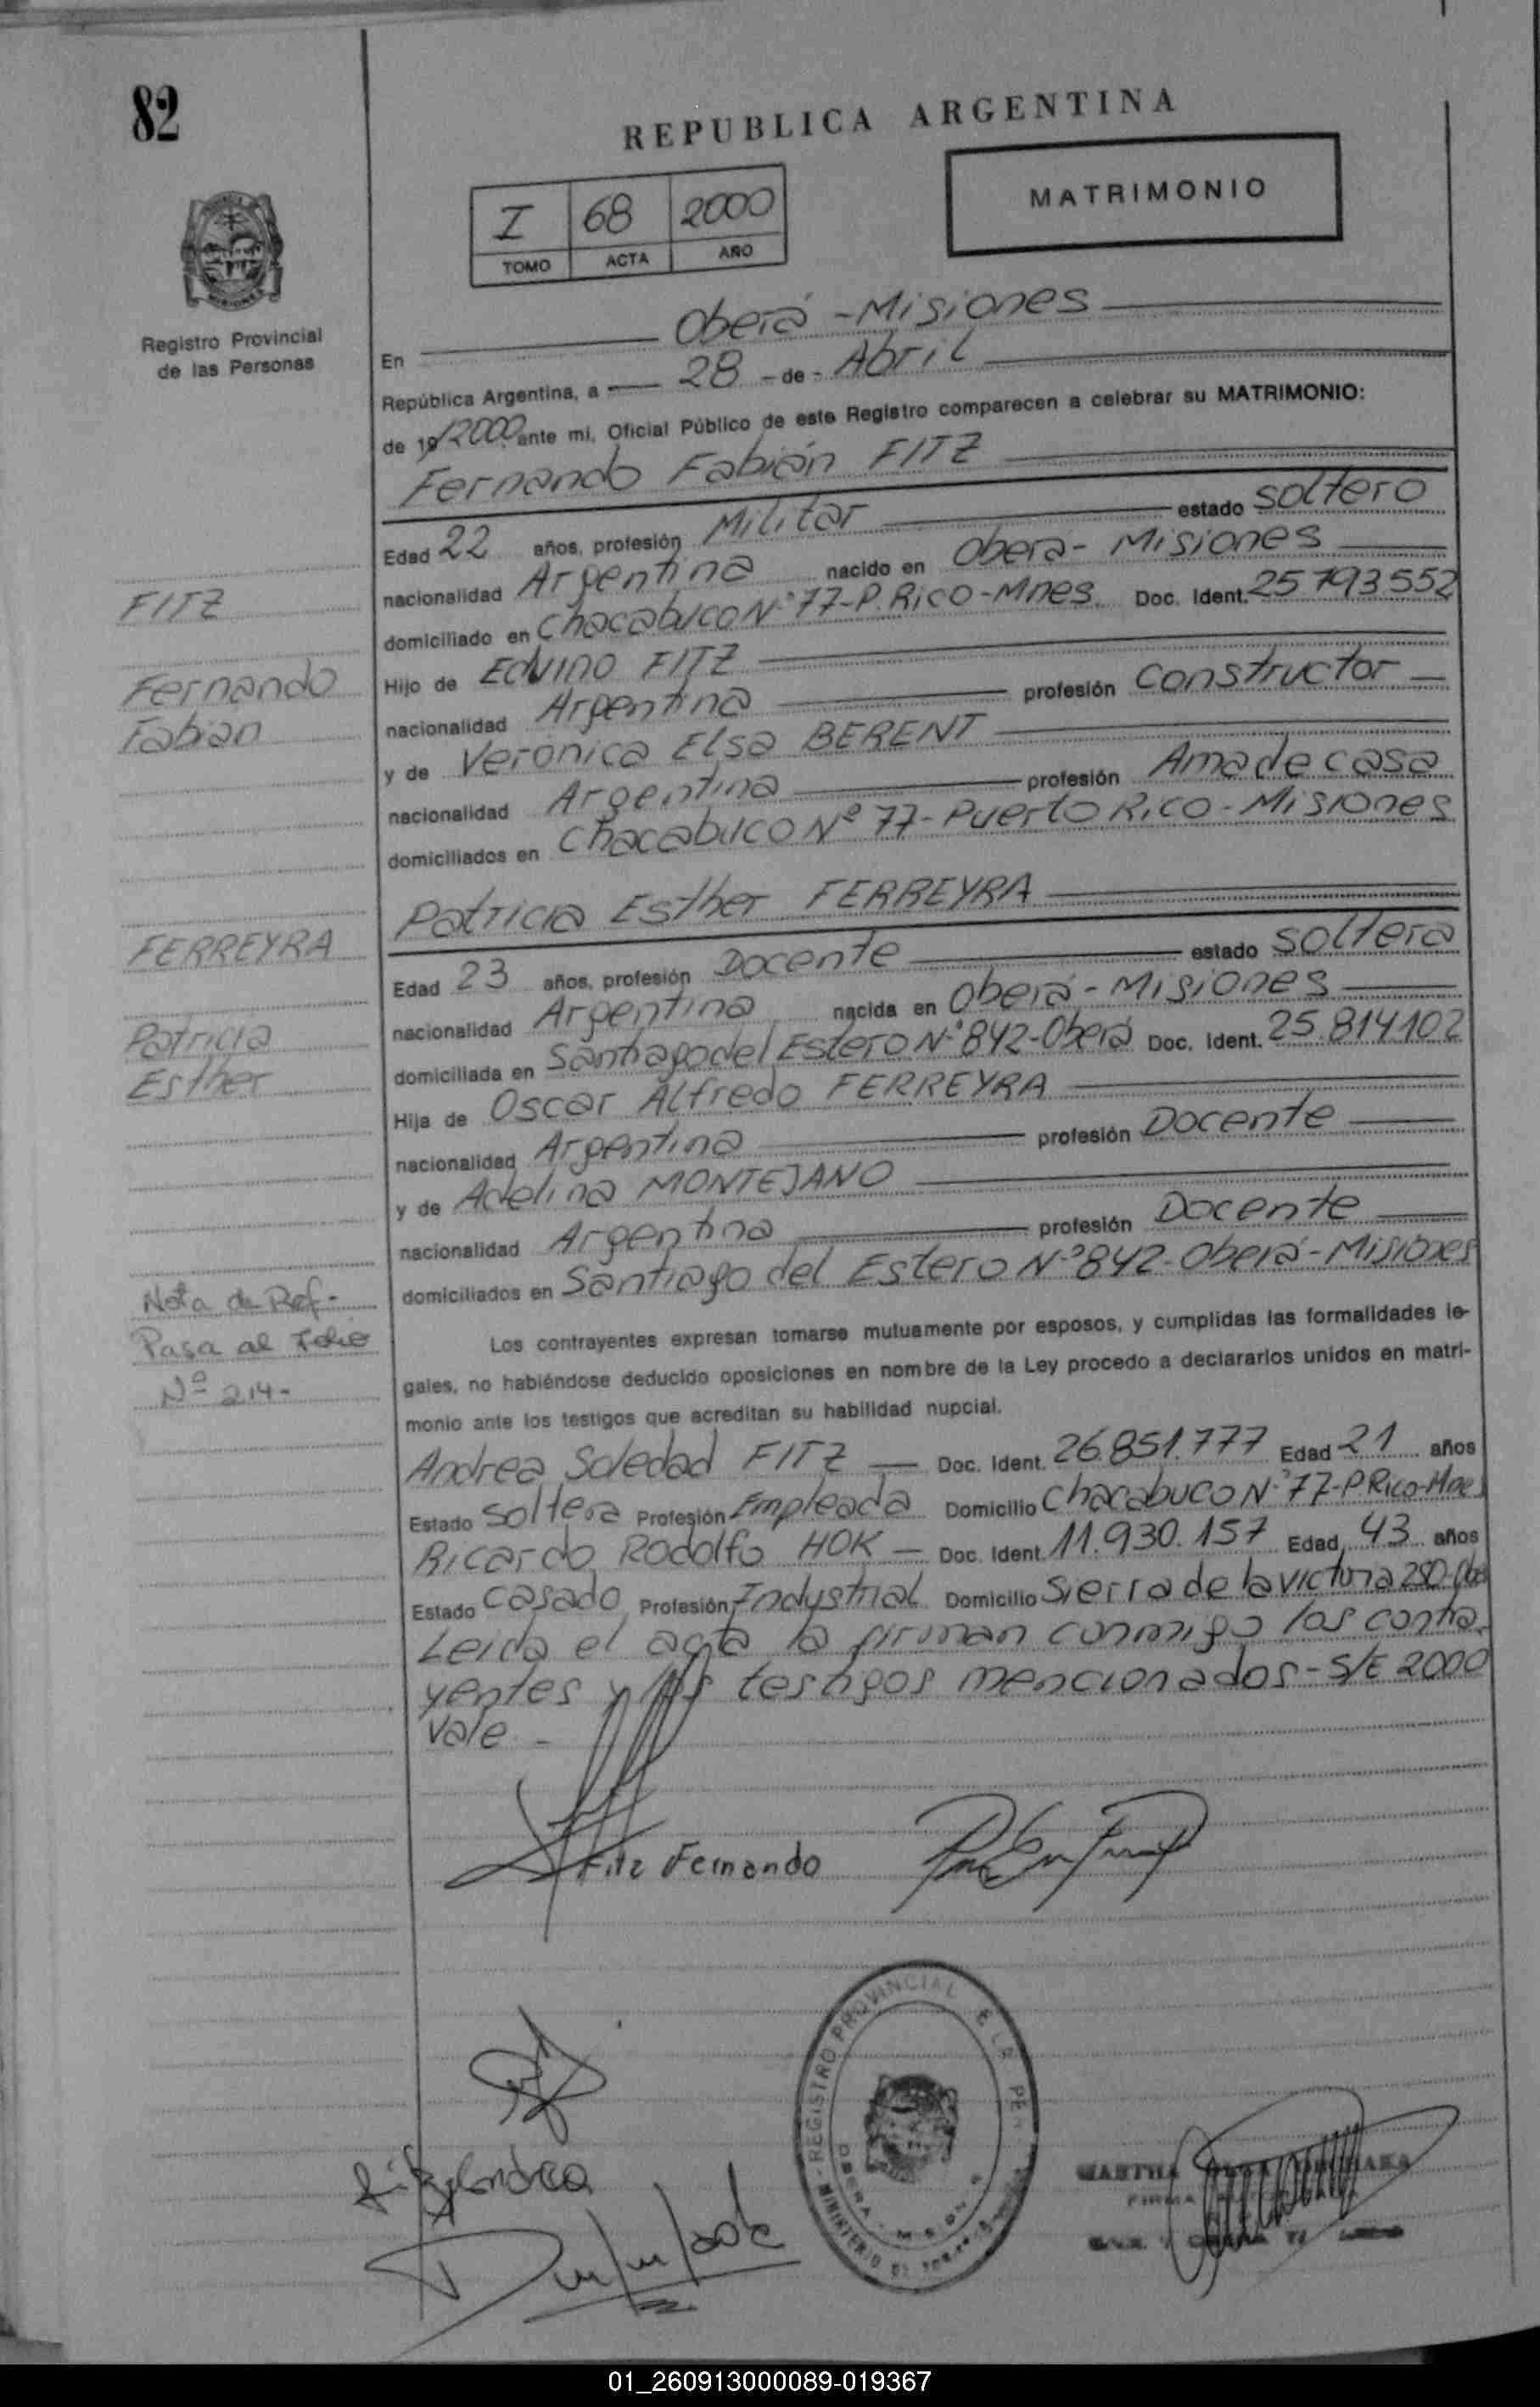 82
REPUBLICA ARGENTINA
I 68 2000
TOMO ACTA AÑO
MATRIMONIO
Registro Provincial
de las Personas
En Oberá - Misiones
República Argentina, a 28 - de - Abril
de 19/2000 ante mi, Oficial Público de este Registro comparecen a celebrar su MATRIMONIO:
Fernando Fabián FITZ
Edad 22 años, profesión Militar estado soltero
nacionalidad Argentina nacido en Oberá - Misiones
domiciliado en Chacabuco N° 77-P. Rico-Mnes. Doc. Ident. 25.793.552
Hijo de Edvino FITZ
nacionalidad Argentina profesión Constructor
y de Verónica Elsa BERENT
nacionalidad Argentina profesión Ama de casa
domiciliados en Chacabuco Nº 77-Puerto Rico-Misiones
Patricia Esther FERREYRA
Edad 23 años, profesión Docente estado soltera
nacionalidad Argentina nacida en Oberá - Misiones
domiciliada en Santiago del Estero N° 842-Oberá Doc. Ident. 25.814.102
Hija de Oscar Alfredo FERREYRA
nacionalidad Argentina profesión Docente
y de Adelina MONTEJANO
nacionalidad Argentina profesión Docente
domiciliados en Santiago del Estero N° 842-Oberá-Misiones
Los contrayentes expresan tomarse mutuamente por esposos, y cumplidas las formalidades le-
gales, no habiéndose deducido oposiciones en nombre de la Ley procedo a declararlos unidos en matri-
monio ante los testigos que acreditan su habilidad nupcial.
Andrea Soledad FITZ Doc. Ident. 26.851.777 Edad 21 años
Estado soltera Profesión Empleada Domicilio Chacabuco N° 77-P.Rico-Mnes
Ricardo Rodolfo HOK Doc. Ident. 11.930.157 Edad 43 años
Estado casado Profesión Industrial Domicilio Sierra de la victoria 250-Obe
Leida el acta la firman conmigo los contra-
yentes y los testigos mencionados-S/E 2000
vale -
FITZ
Fernando
Fabian
FERREYRA
Patricia
Esther
Nota de Ref-
Pasa al Folio
Nº 214-
Fitz Fernando
Fitz Andrea
REGISTRO PROVINCIAL
MINISTERIO
MARTHA
FIRMA
01_260913000089-019367